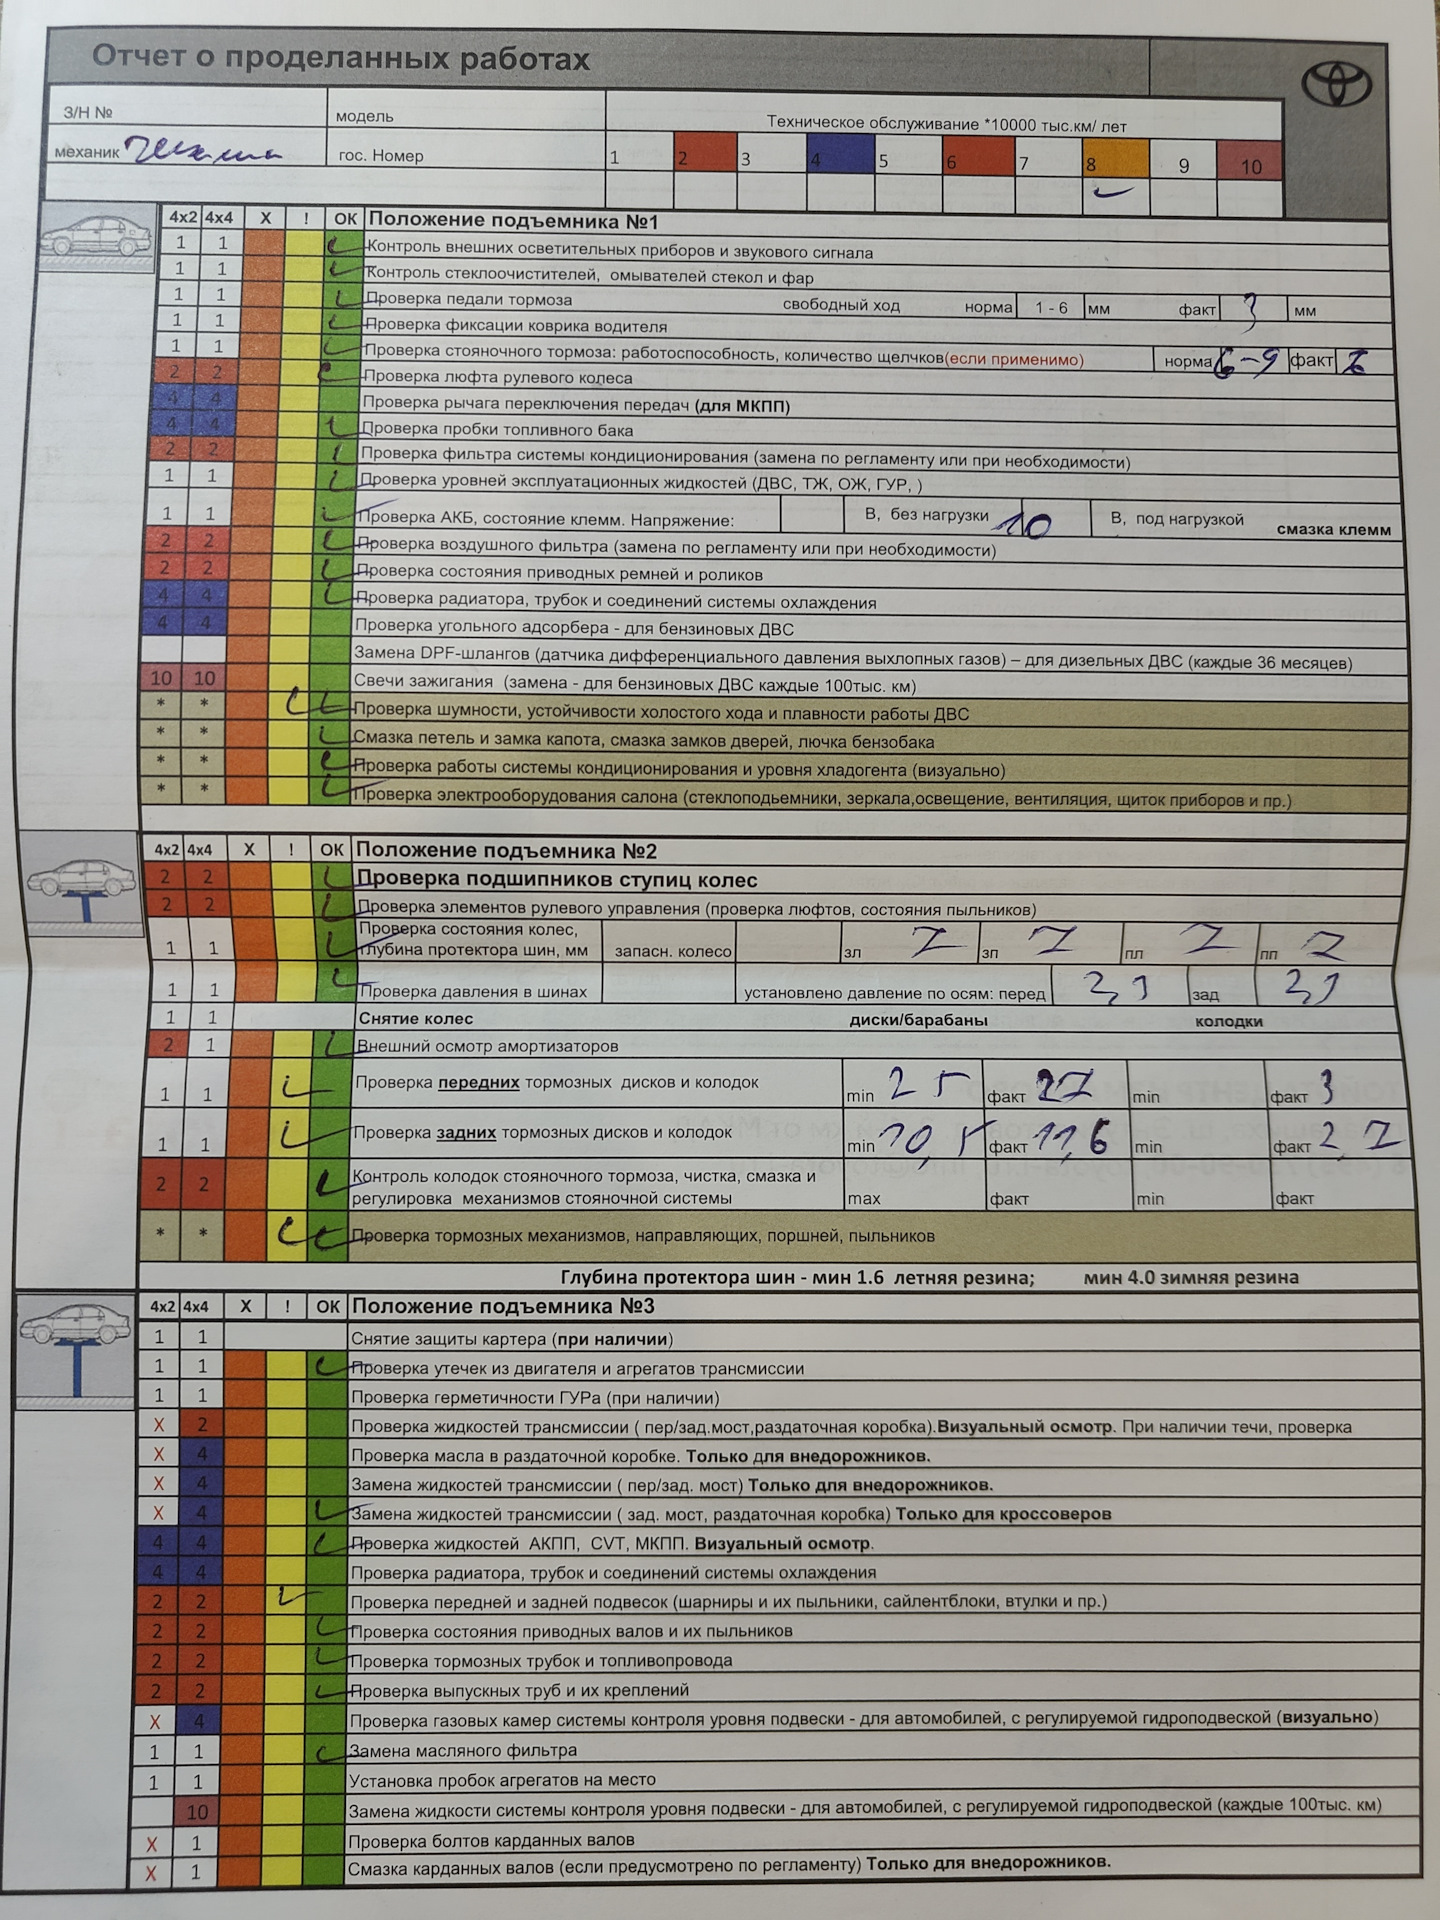 Отчет о проделанных работах
З/Н №
модель
Техническое обслуживание *10000 тыс.км/ лет
механик
гос. Номер
1 2 3 4 5 6 7 8 9 10
4x2 4x4 X ! ОК Положение подъемника №1
1 1 Контроль внешних осветительных приборов и звукового сигнала
1 1 Контроль стеклоочистителей, омывателей стекол и фар
1 1 Проверка педали тормоза свободный ход норма 1 - 6 мм факт 3 мм
1 1 Проверка фиксации коврика водителя
1 1 Проверка стояночного тормоза: работоспособность, количество щелчков(если применимо) норма 6-9 факт
2 2 Проверка люфта рулевого колеса
4 4 Проверка рычага переключения передач (для МКПП)
4 4 Проверка пробки топливного бака
2 2 Проверка фильтра системы кондиционирования (замена по регламенту или при необходимости)
1 1 Проверка уровней эксплуатационных жидкостей (ДВС, ТЖ, ОЖ, ГУР, )
1 1 Проверка АКБ, состояние клемм. Напряжение: В, без нагрузки 10 В, под нагрузкой смазка клемм
2 2 Проверка воздушного фильтра (замена по регламенту или при необходимости)
2 2 Проверка состояния приводных ремней и роликов
4 4 Проверка радиатора, трубок и соединений системы охлаждения
4 4 Проверка угольного адсорбера - для бензиновых ДВС
Замена DPF-шлангов (датчика дифференциального давления выхлопных газов) – для дизельных ДВС (каждые 36 месяцев)
10 10 Свечи зажигания (замена - для бензиновых ДВС каждые 100тыс. км)
* * Проверка шумности, устойчивости холостого хода и плавности работы ДВС
* * Смазка петель и замка капота, смазка замков дверей, лючка бензобака
* * Проверка работы системы кондиционирования и уровня хладогента (визуально)
* * Проверка электрооборудования салона (стеклоподьемники, зеркала,освещение, вентиляция, щиток приборов и пр.)
4x2 4x4 X ! ОК Положение подъемника №2
2 2 Проверка подшипников ступиц колес
2 2 Проверка элементов рулевого управления (проверка люфтов, состояния пыльников)
Проверка состояния колес,
1 1 глубина протектора шин, мм запасн. колесо зл 7 зп 7 пл 7 пп 7
1 1 Проверка давления в шинах установлено давление по осям: перед 2,1 зад 2,1
1 1 Снятие колес диски/барабаны колодки
2 1 Внешний осмотр амортизаторов
1 1 Проверка передних тормозных дисков и колодок min 25 факт 27 min факт 3
1 1 Проверка задних тормозных дисков и колодок min 10,5 факт 11,6 min факт 2,7
2 2 Контроль колодок стояночного тормоза, чистка, смазка и
регулировка механизмов стояночной системы max факт min факт
* * Проверка тормозных механизмов, направляющих, поршней, пыльников
Глубина протектора шин - мин 1.6 летняя резина; мин 4.0 зимняя резина
4x2 4x4 X ! ОК Положение подъемника №3
1 1 Снятие защиты картера (при наличии)
1 1 Проверка утечек из двигателя и агрегатов трансмиссии
1 1 Проверка герметичности ГУРа (при наличии)
X 2 Проверка жидкостей трансмиссии ( пер/зад.мост,раздаточная коробка).Визуальный осмотр. При наличии течи, проверка
X 4 Проверка масла в раздаточной коробке. Только для внедорожников.
X 4 Замена жидкостей трансмиссии ( пер/зад. мост) Только для внедорожников.
X 4 Замена жидкостей трансмиссии ( зад. мост, раздаточная коробка) Только для кроссоверов
4 4 Проверка жидкостей АКПП, CVT, МКПП. Визуальный осмотр.
4 4 Проверка радиатора, трубок и соединений системы охлаждения
2 2 Проверка передней и задней подвесок (шарниры и их пыльники, сайлентблоки, втулки и пр.)
2 2 Проверка состояния приводных валов и их пыльников
2 2 Проверка тормозных трубок и топливопровода
2 2 Проверка выпускных труб и их креплений
X 4 Проверка газовых камер системы контроля уровня подвески - для автомобилей, с регулируемой гидроподвеской (визуально)
1 1 Замена масляного фильтра
1 1 Установка пробок агрегатов на место
10 Замена жидкости системы контроля уровня подвески - для автомобилей, с регулируемой гидроподвеской (каждые 100тыс. км)
X 1 Проверка болтов карданных валов
X 1 Смазка карданных валов (если предусмотрено по регламенту) Только для внедорожников.